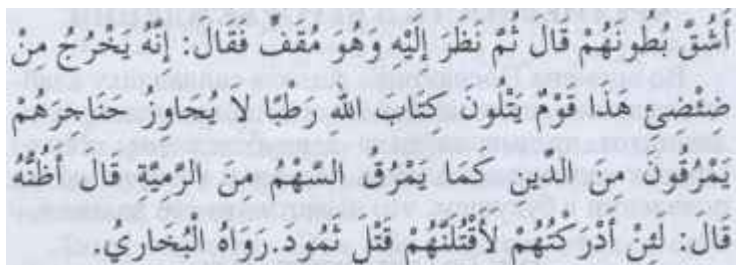 أَشُقَّ بُطُونَهُمْ قَالَ ثُمَّ نَظَرَ إِلَيْهِ وَهُوَ مُقَفٍّ فَقَالَ: إِنَّهُ يَخْرُجُ مِنْ
ضِئْضِئِ هَذَا قَوْمٌ يَتْلُونَ كِتَابَ اللهِ رَطْبًا لاَ يُجَاوِزُ حَنَاجِرَهُمْ
يَمْرُقُونَ مِنَ الدِّينِ كَمَا يَمْرُقُ السَّهْمُ مِنَ الرَّمِيَّةِ قَالَ أَظُنُّهُ
قَالَ: لَئِنْ أَدْرَكْتُهُمْ لأَقْتُلَنَّهُمْ قَتْلَ ثَمُودَ.رَوَاهُ الْبُخَارِيُ.